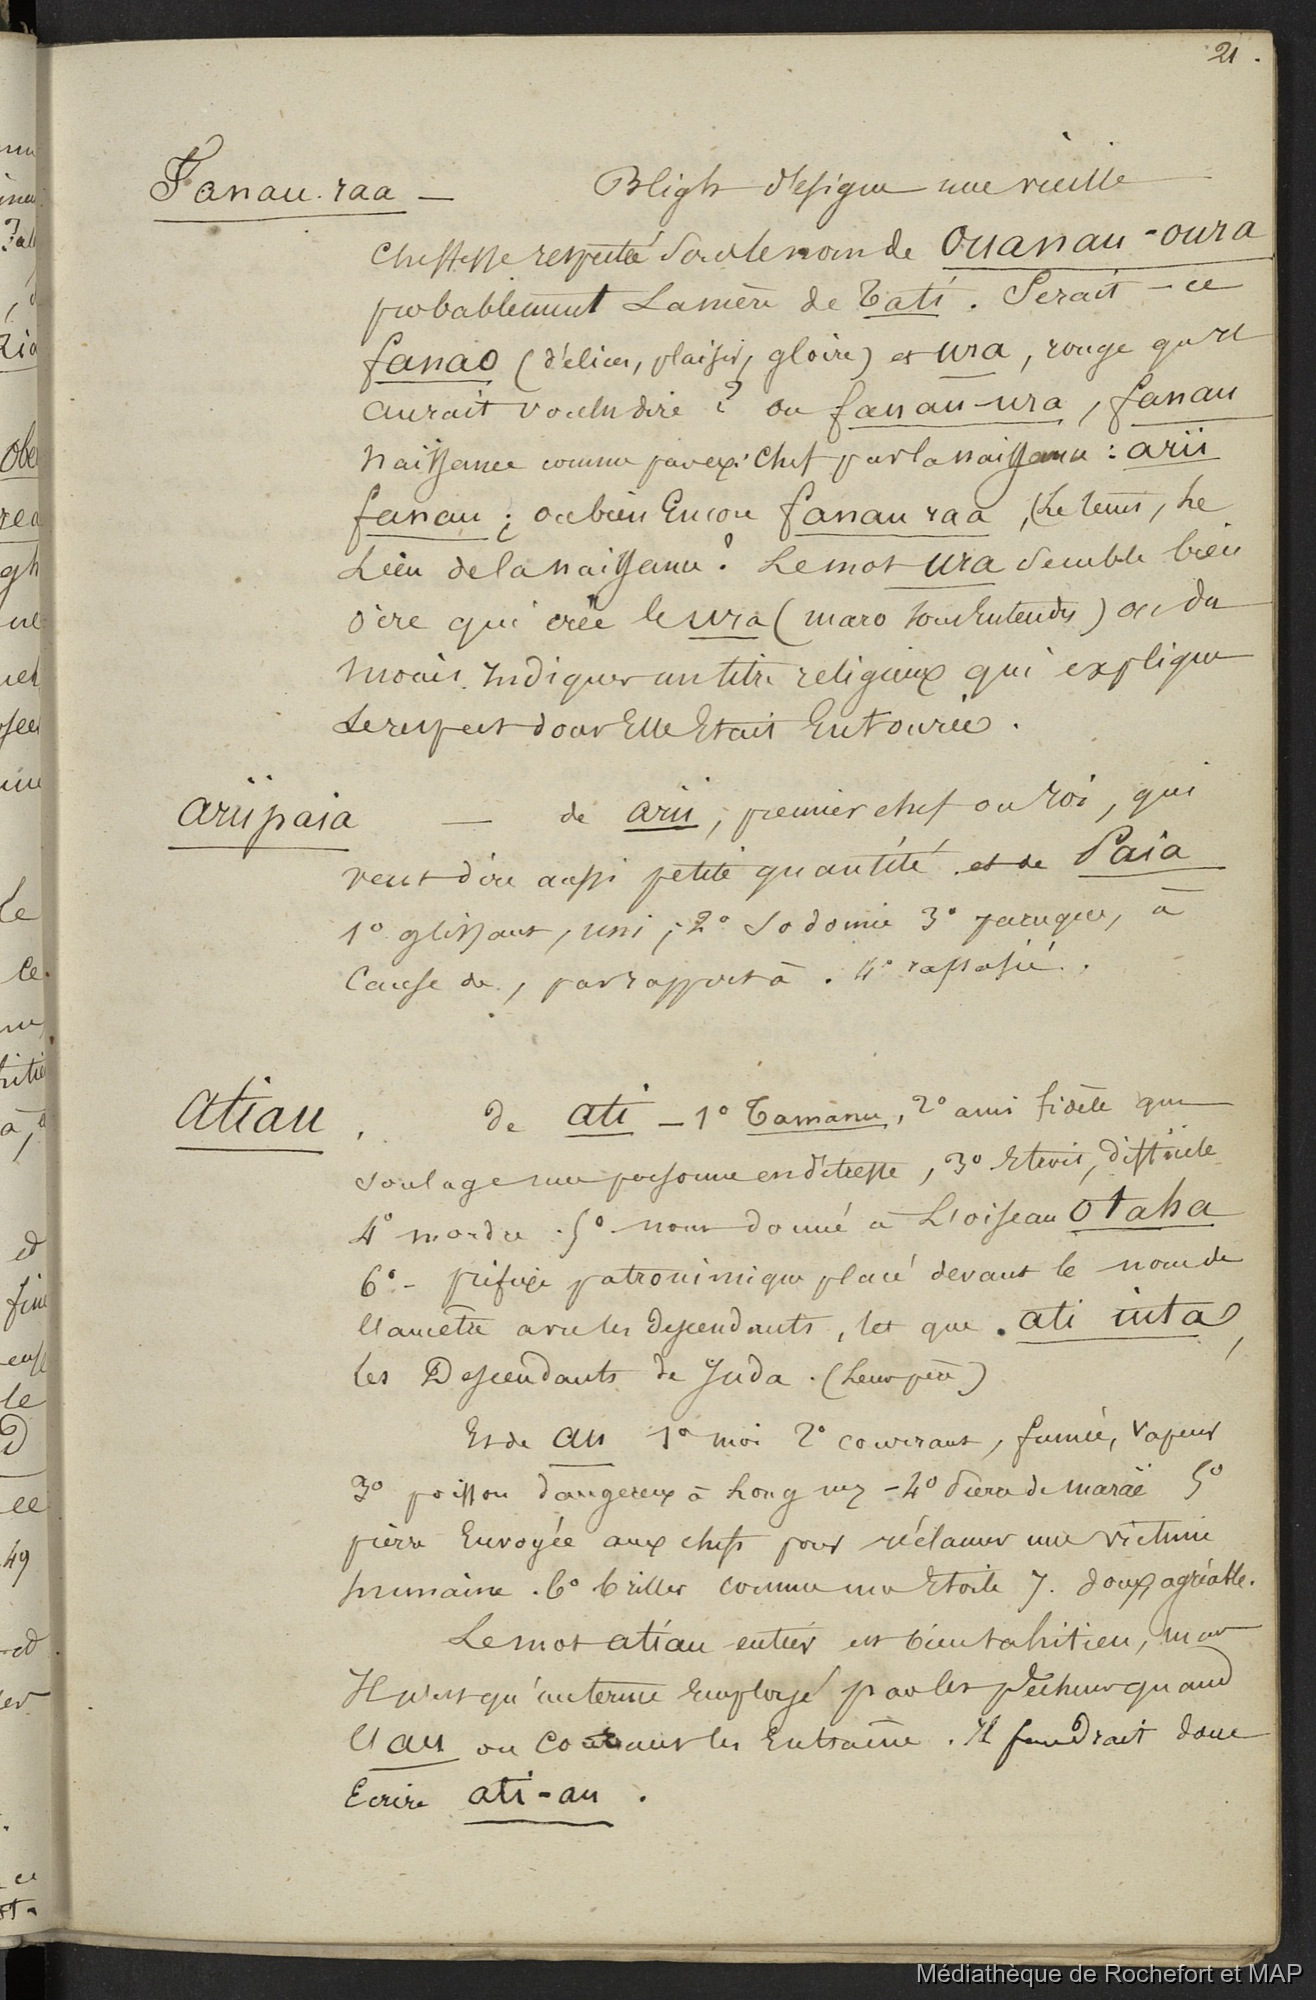 21.
Fanau.raa — Bligh désigne une vieille
cheffesse respectée sous le nom de Ouanau-oura
probablement La mère de Tati. Serait-ce
fanao (délices, plaisir, gloire) et ura, rouge qu'il
aurait voulu dire ? ou fanau-ura, fanau
naissance comme par ex: chef par la naissance : arii
fanau ; ou bien Encore fanau raa, (Le tems, Le
Lieu de la naissance ? Le mot ura semble bien
dire qui crée le ura (maro sous Entendu) ou du
moins indiquer un titre religieux qui explique
Le respect dont Elle Etait Entourée.
Ariipaia — de arii, premier chef ou roi, qui
veut dire aussi petite quantité et de Paia
1° glissant, uni, 2° Sodomie 3° parceque, à
Cause de, par rapport à. 4° rassasié.
Atiau, de ati — 1° Tamanu, 2° ami fidèle qui
soulage une personne en détresse, 3° Etroit, difficile
4° mordre. 5° nom donné à L'oiseau Otaha
6° - préfixe patronimique placé devant le nom de
l'ancêtre avec les descendants, tel que ati iuta,
les Descendants de Juda. (Leur père)
Et de au 1° moi 2° courant, fumée, vapeur
3° poisson dangereux à Long nez - 4° Pierre de maraë 5°
pierre Envoyée aux chefs pour réclamer une victime
humaine. 6° briller comme une Etoile 7. doux, agréable.
Le mot atiau entier est bien tahitien, mais
Il n'est qu'un terme Employé par les pêcheurs quand
l'au ou courant les Entraîne. Il faudrait donc
Ecrire ati-au.
Médiathèque de Rochefort et MAP